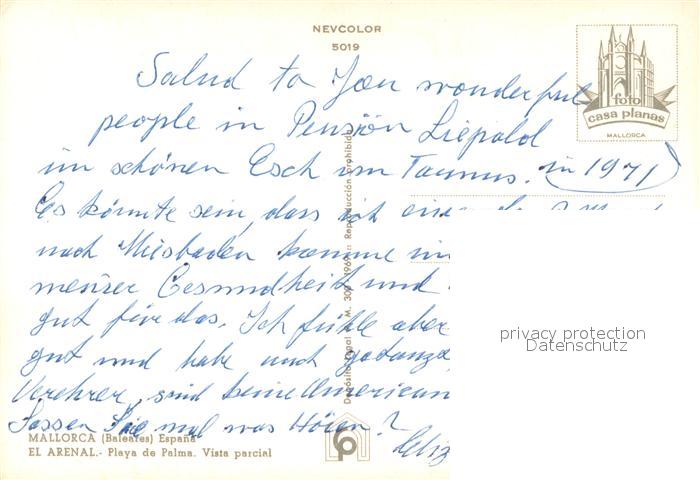 NEVCOLOR
5019
foto
casa planas
MALLORCA
Salud to You wonderful
people in Pensión Liepold
im schönen Esch im Taunus. in 1971
Es könnte sein, dass ich
nach Wiesbaden komme
meiner Gesundheit und
gut für das. Ich fühle aber
gut und habe auch
Verehrer, sind keine American
Lassen Sie mal was Hören?
Depósito Legal B. M. 300 - 1969 :: Reproducción prohibida
privacy protection
Datenschutz
MALLORCA (Baleares) España
EL ARENAL.- Playa de Palma. Vista parcial